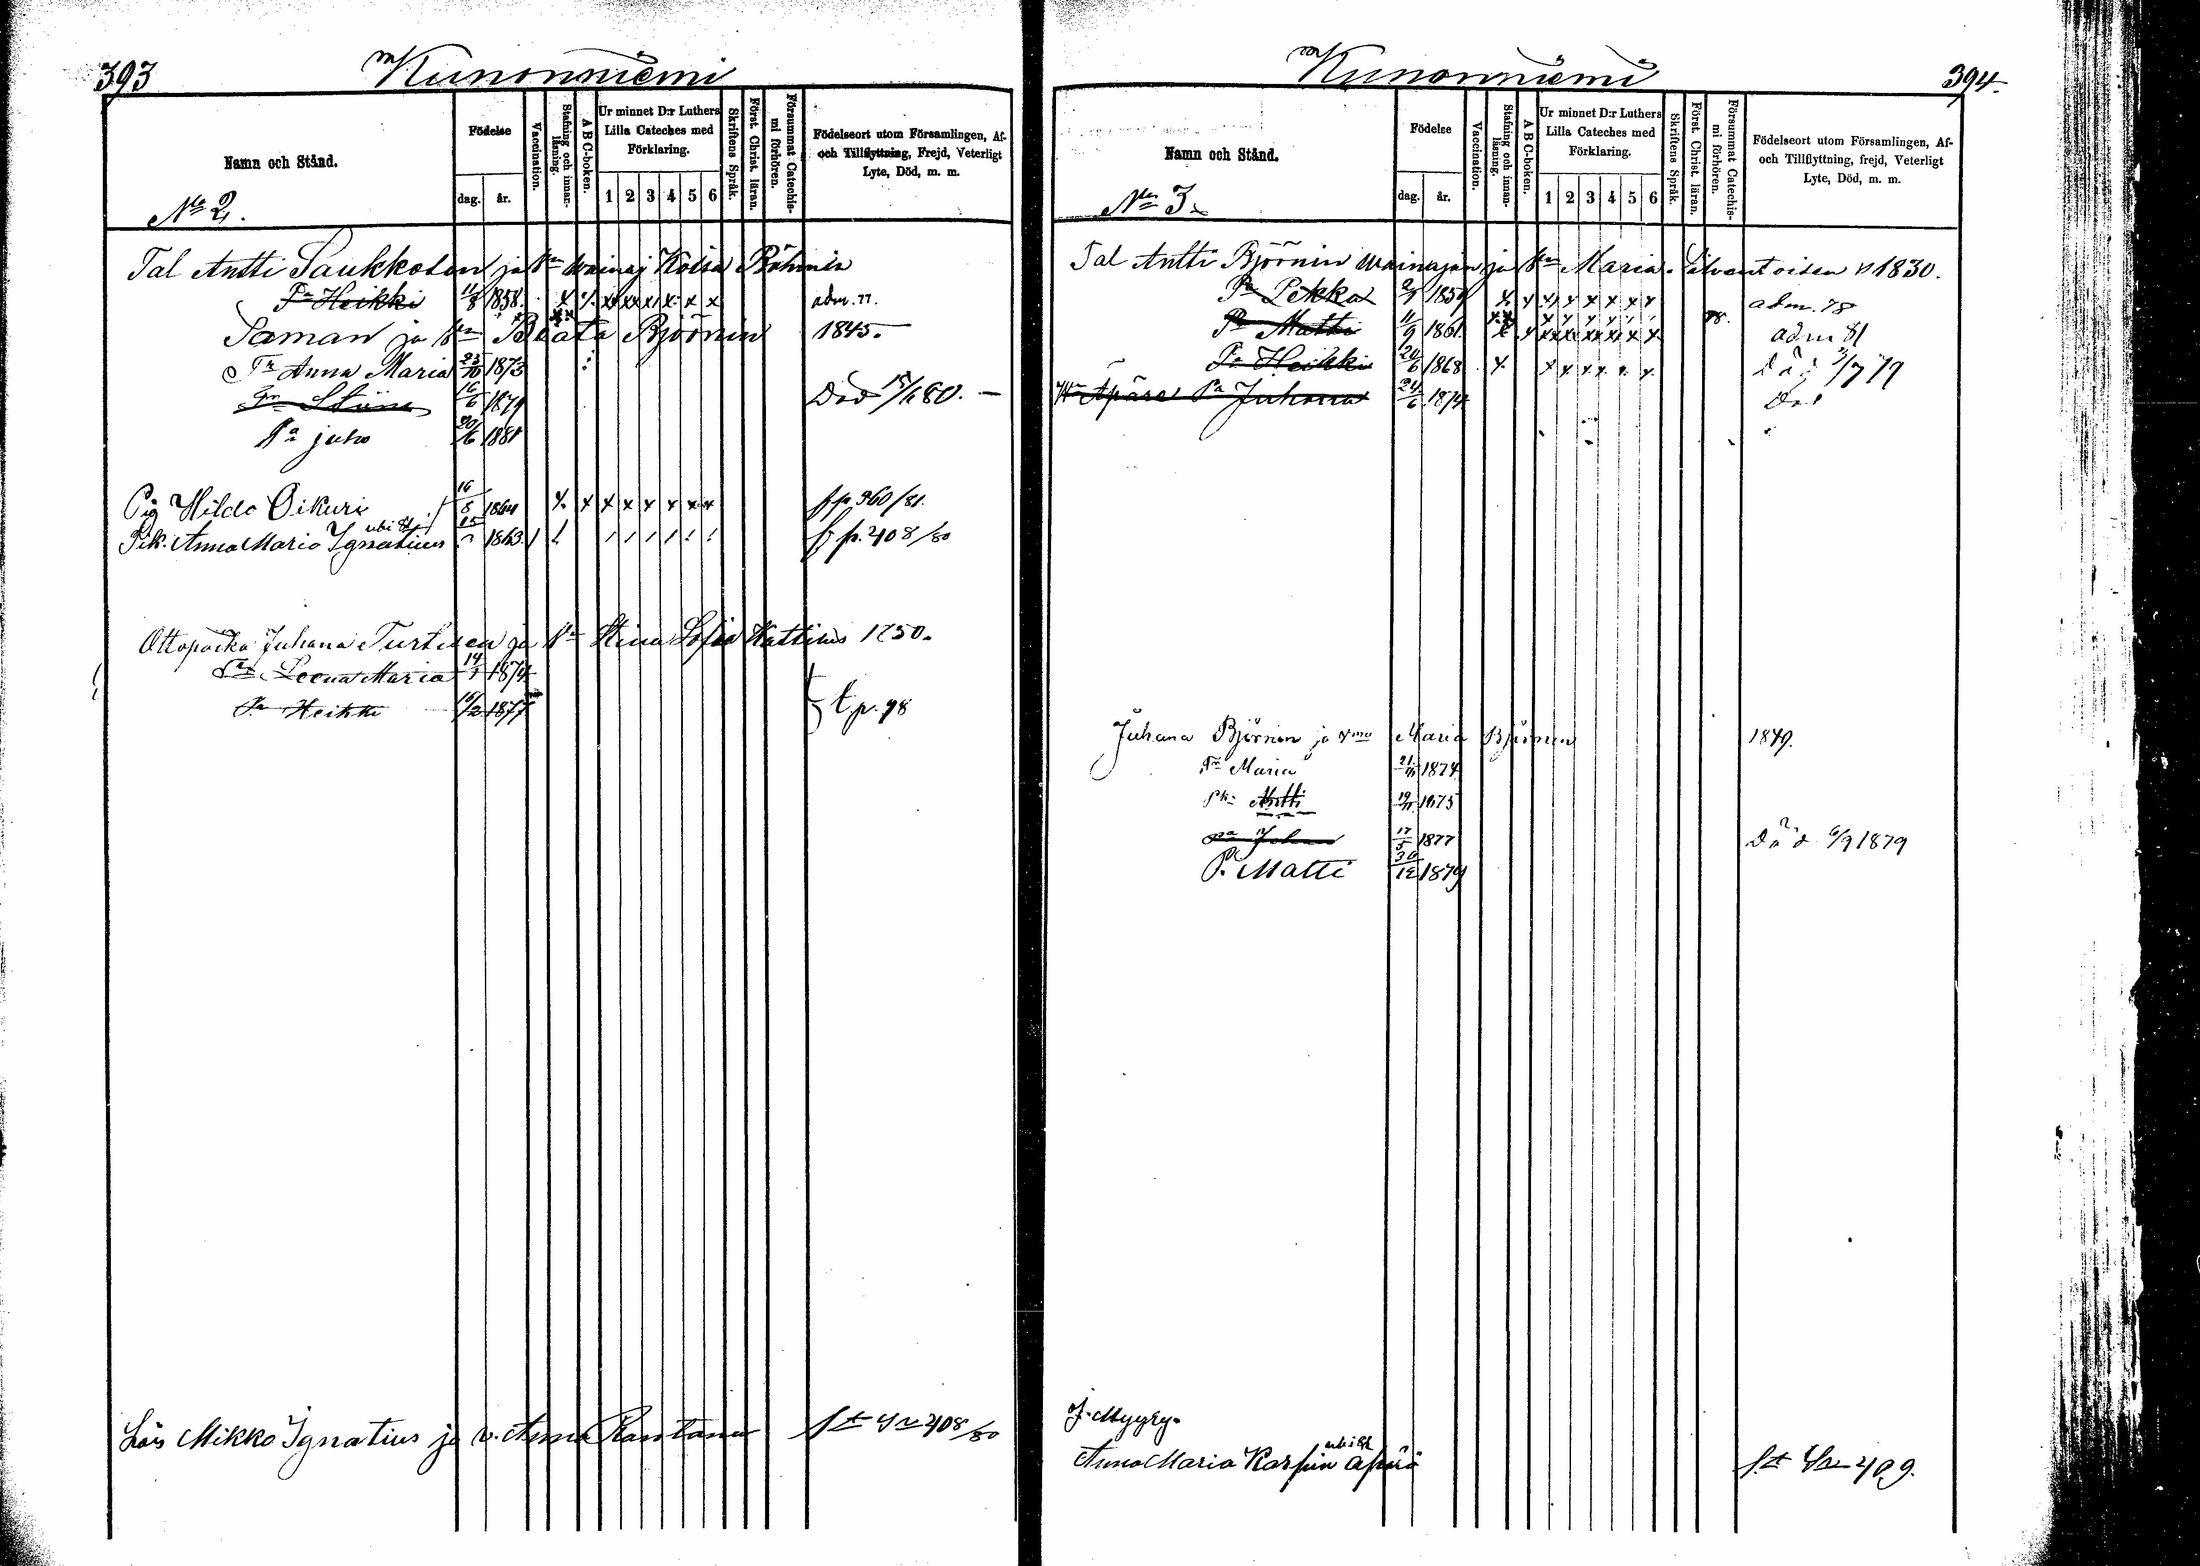 393
Kunonniemi
Namn och Stånd.
Födelse
dag.
år.
Vaccination.
Stafning och innanläsning.
A B C-boken.
Ur minnet D:r Luthers Lilla Cateches med Förklaring.
1 2 3 4 5 6
Skriftens Språk.
Först. Christ. läran.
Försummat Catechismi förhören.
Födelseort utom Församlingen, Af- och Tillflyttning, Frejd, Veterligt Lyte, Död, m. m.
No 2.
Tal Antti Saukkosen ja Vmo wainaj Kaisa Böhmin
Pa Heikki 11/8 1858. x x x x x x x x adm. 77.
Saman ja Vmo Beata Björnin 1845.
Tr Anna Maria 23/10 1873
Tr Stiina 16/6 1879 Död 15/1 80.
Pa juho 20/6 1881
Pig Hilda Oikuri 16/8 1864 x x x x x x x x fp. 360/81.
Pik. Anna Maria Ignatius 1863 f p. 408/80
Juhana Turtisen ja Vo Stina Sofia Hattinis 1850.
Tr Leena Maria 14/1 1874
Pa Heikki 16/2 1877 t. p. 98
Lois Mikko Ignatius ja v. Anna Rantana 408/80
Kunonniemi
394.
Namn och Stånd.
Födelse
dag.
år.
Vaccination.
Stafning och innanläsning.
A B C-boken.
Ur minnet D:r Luthers Lilla Cateches med Förklaring.
1 2 3 4 5 6
Skriftens Språk.
Först. Christ. läran.
Försummat Catechismi förhören.
Födelseort utom Församlingen, Af- och Tillflyttning, frejd, Veterligt Lyte, Död, m. m.
No 3.
Tal Antti Björnin wainajan ja Vmo Maria Silventoisen 1830.
Pa Pekka 1859 x x x x x x x x adm. 78
Pa Matti 11/9 1861. x x x x x x x x 78. adm 81
Pa Heikki 20/6 1868 x x x x x x x Död 79
Äpäre Pa Juhana 24/6 1874 Död
Juhana Björnin ja Vmo Maria Björnin 1849.
Tr Maria 1874
Pk Antti 1875
Pa Johan 17/5 1877 Död 6/9 1879
P. Matti 30/12 1879
J. Myyry.
Anna Maria Karpin äpärä 409.